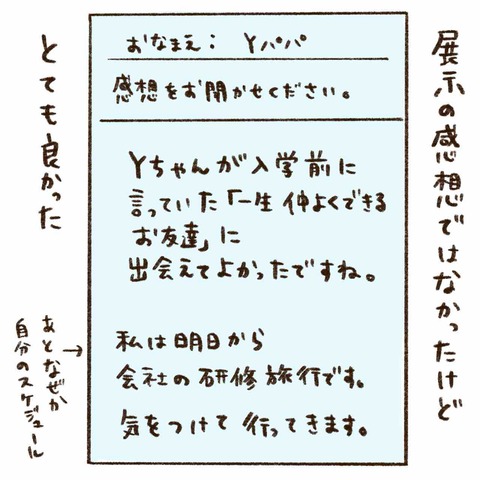 展示の感想ではなかったけど
おなまえ： Yパパ
感想をお聞かせください。
Yちゃんが入学前に
言っていた「一生仲よくできる
お友達」に
出会えてよかったですね。
私は明日から
会社の研修旅行です。
気をつけて行ってきます。
とても良かった
あとなぜか
自分のスケジュール
→